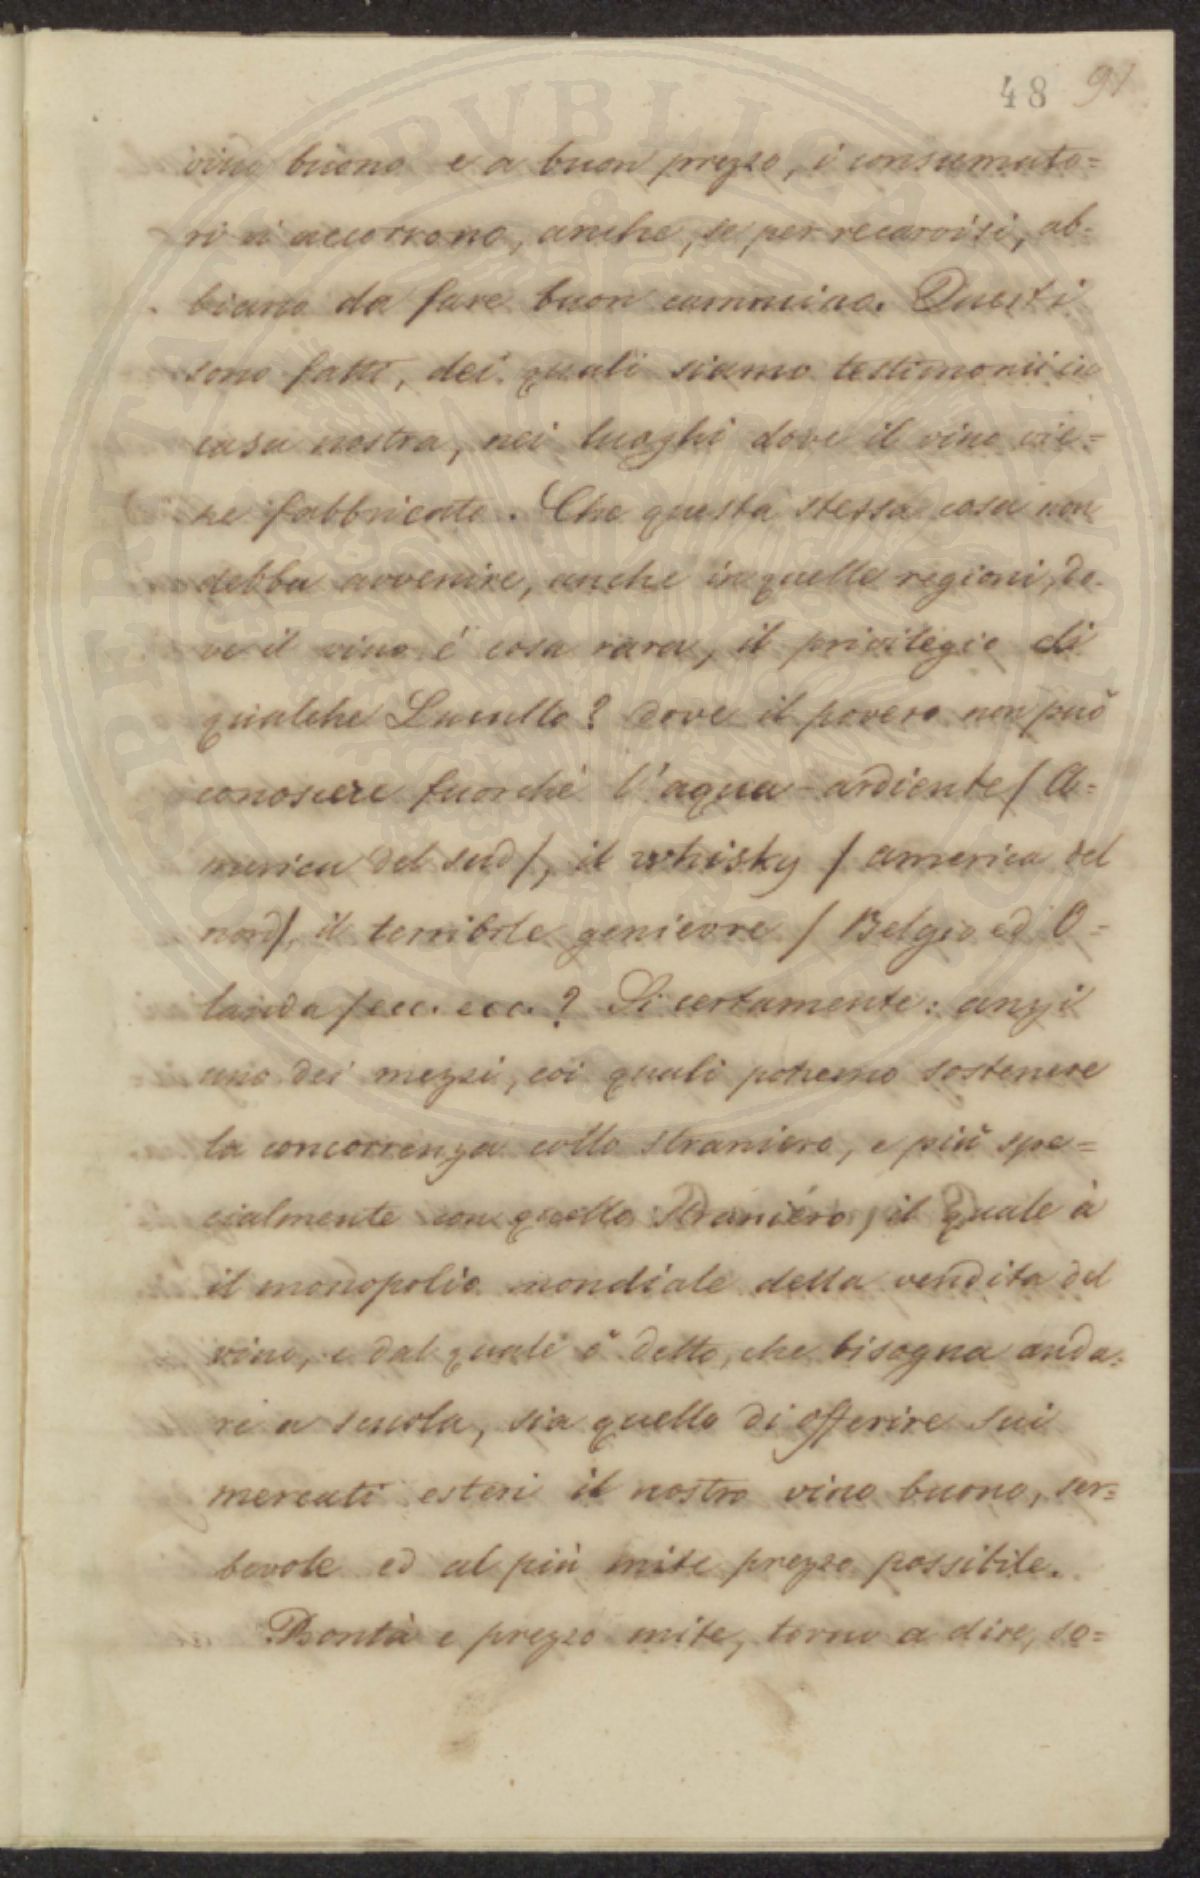 48 91
vino buono e a buon prezzo, i consumato=
ri vi accorrono, anche, se per recarvisi, ab=
biano da fare buon cammino. Questi
sono fatti, dei quali siamo testimonii in
casa nostra, nei luoghi dove il vino vie=
ne fabbricato. Che questa stessa cosa non
debba avvenire, anche in quelle regioni, do=
ve il vino é cosa rara, il privilegio di
qualche Lucullo? dove il povero non può
conoscere fuorchè l'aqua-ardiente / A=
merica del sud /, il whisky / america del
nord /, il terribile genievre / Belgio ed O=
landa / ecc. ecc.? Si certamente: anzi
uno dei mezzi, coi quali potremo sostenere
la concorrenza collo straniero, e più spe=
cialmente con quello straniero, il quale à
il monopolio mondiale della vendita del
vino, e dal quale ò detto, che bisogna anda=
re a scuola, sia quello di offerire sui
mercati esteri il nostro vino buono, ser=
bevole ed al più mite prezzo possibile.
Bontà e prezzo mite, torno a dire, so=